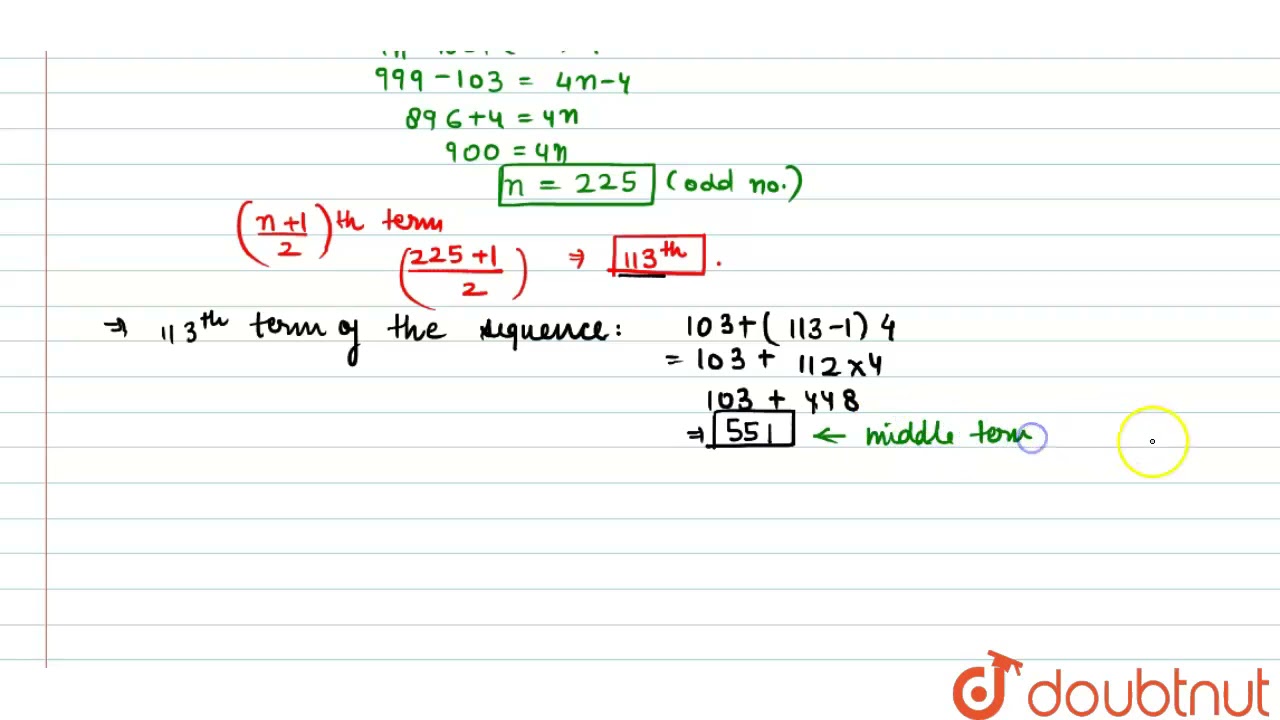 999 - 103 = 4n - 4
896 + 4 = 4n
900 = 4n
n = 225 (odd no.)
(n+1/2)th term
(225+1/2) ⇒ 113th.
⇒ 113th term of the sequence: 103 + (113 - 1) 4
= 103 + 112 × 4
103 + 448
⇒ 551 ← middle term
doubtnut